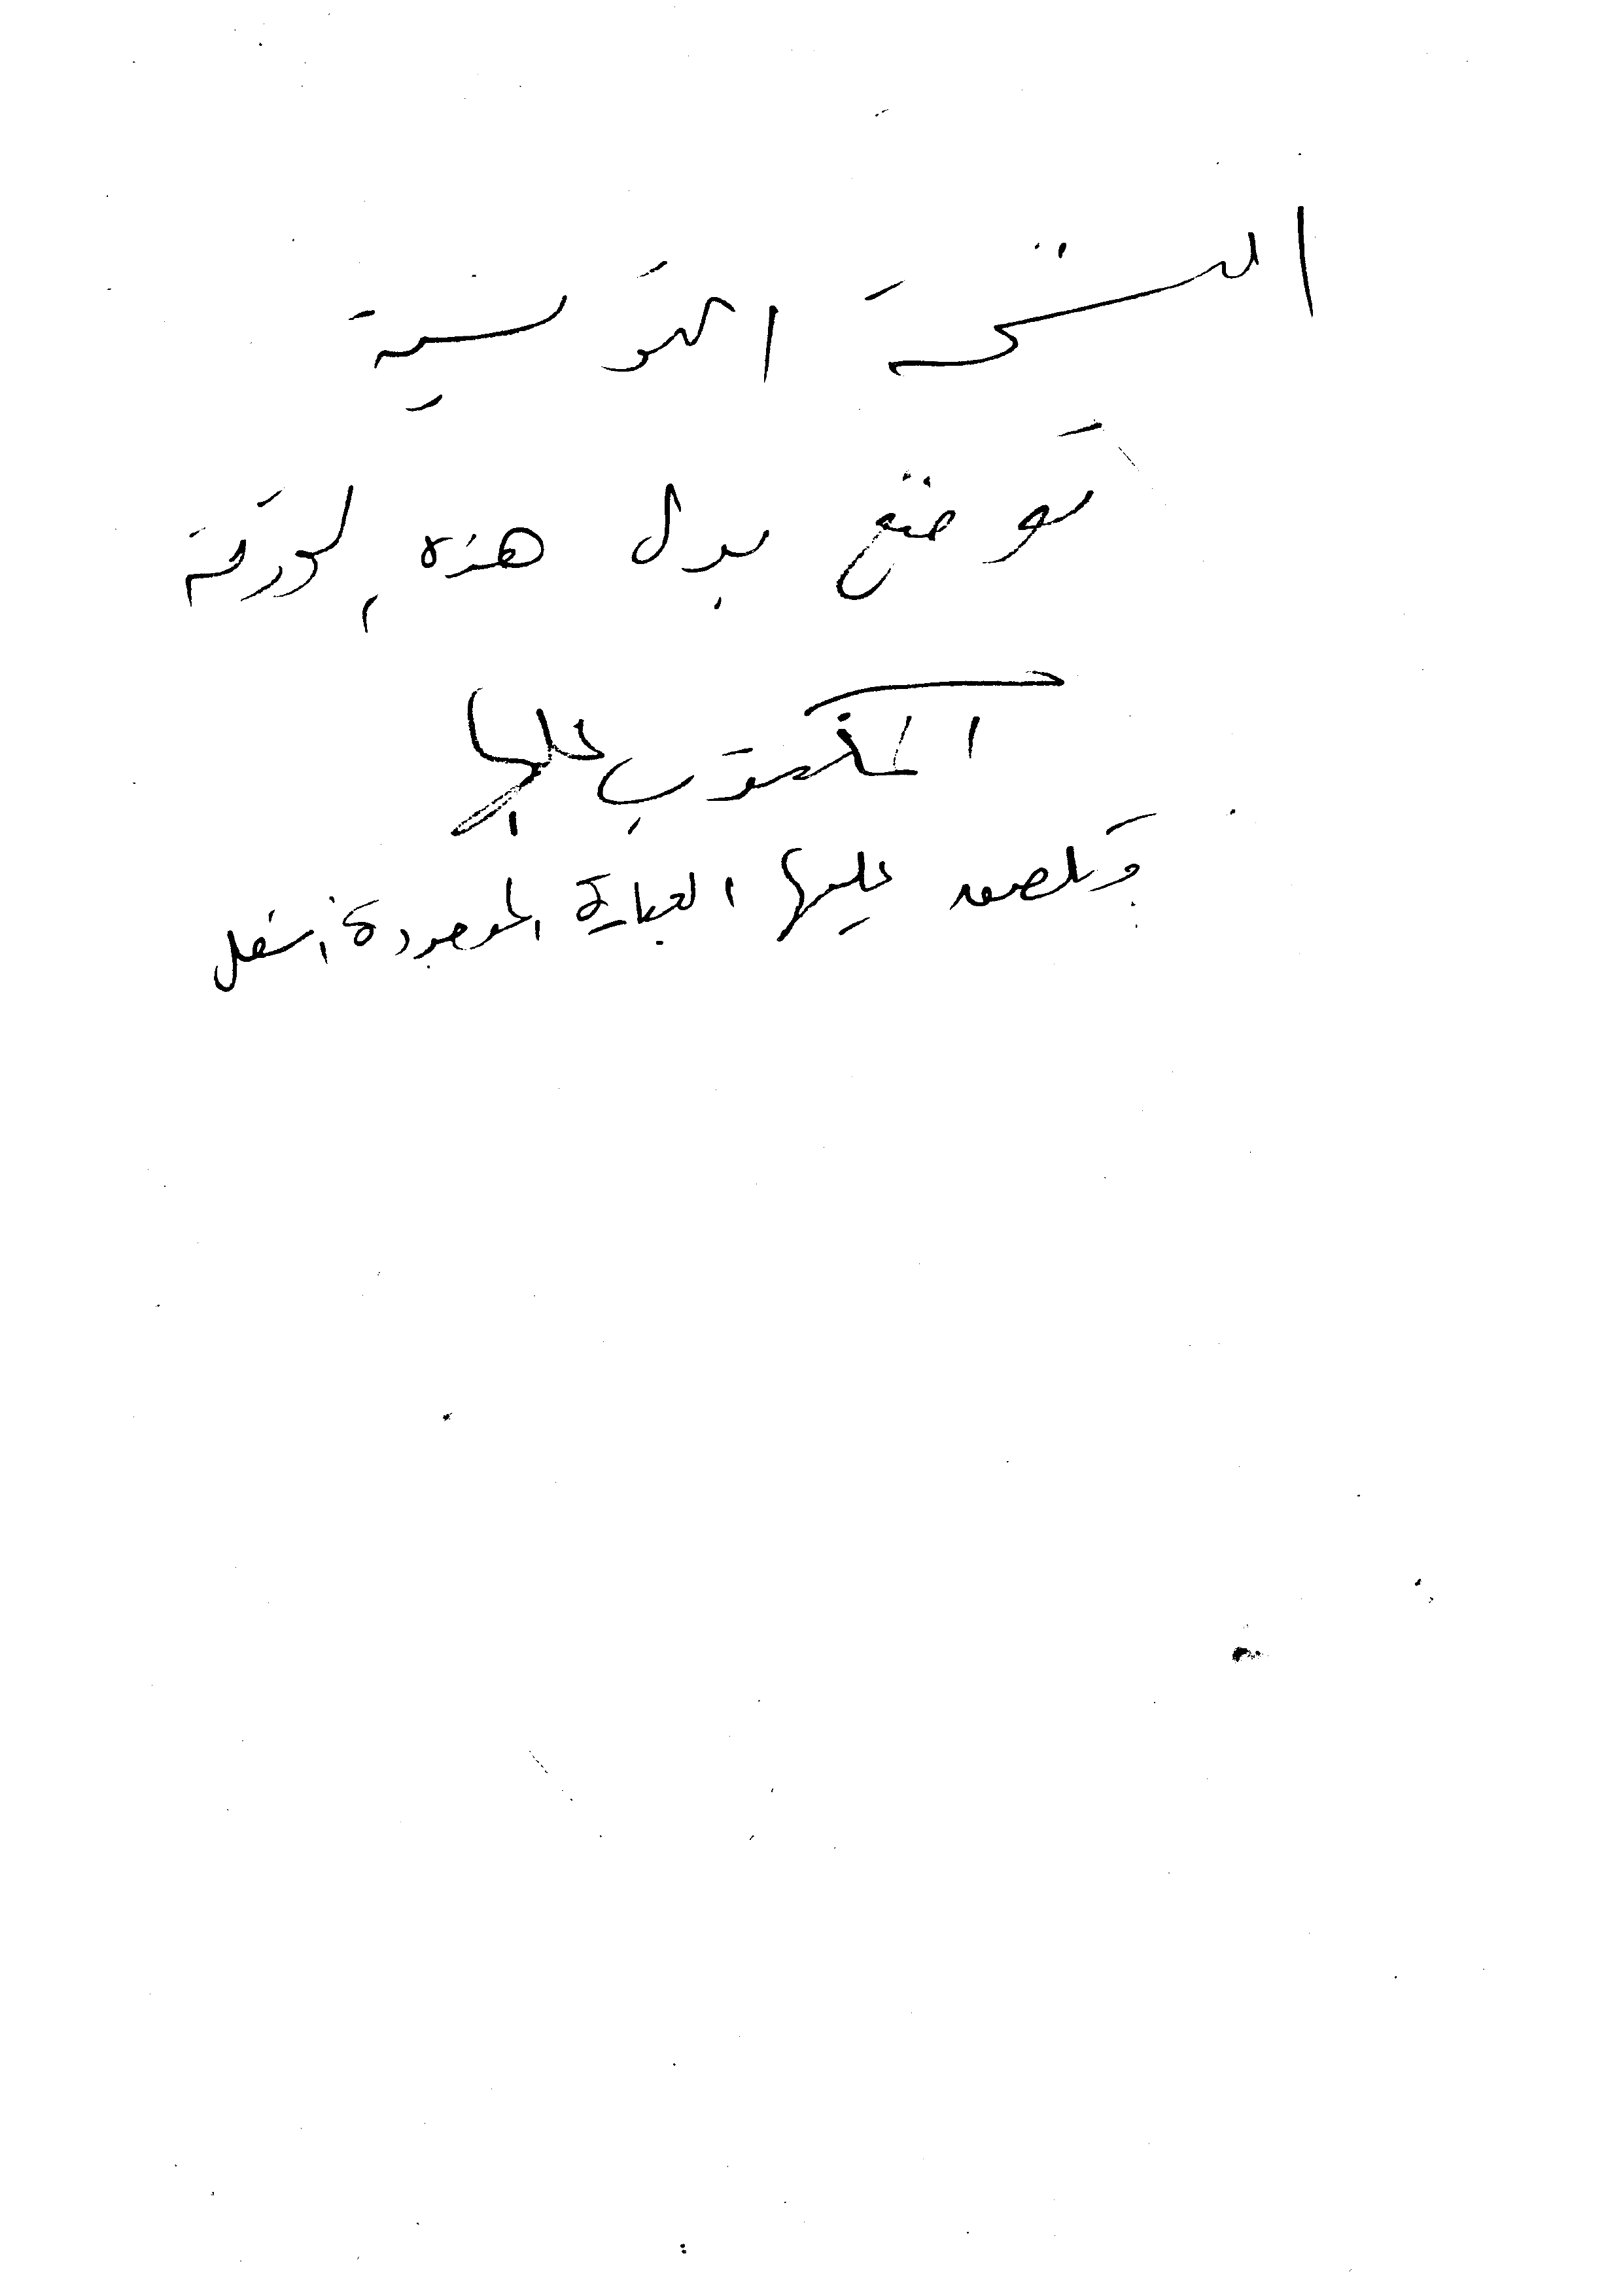 النسخة التونسية
توضع بدل هذه الورقة
المكتوب عليها
وتلصق عليها العبارة الموجودة أسفل